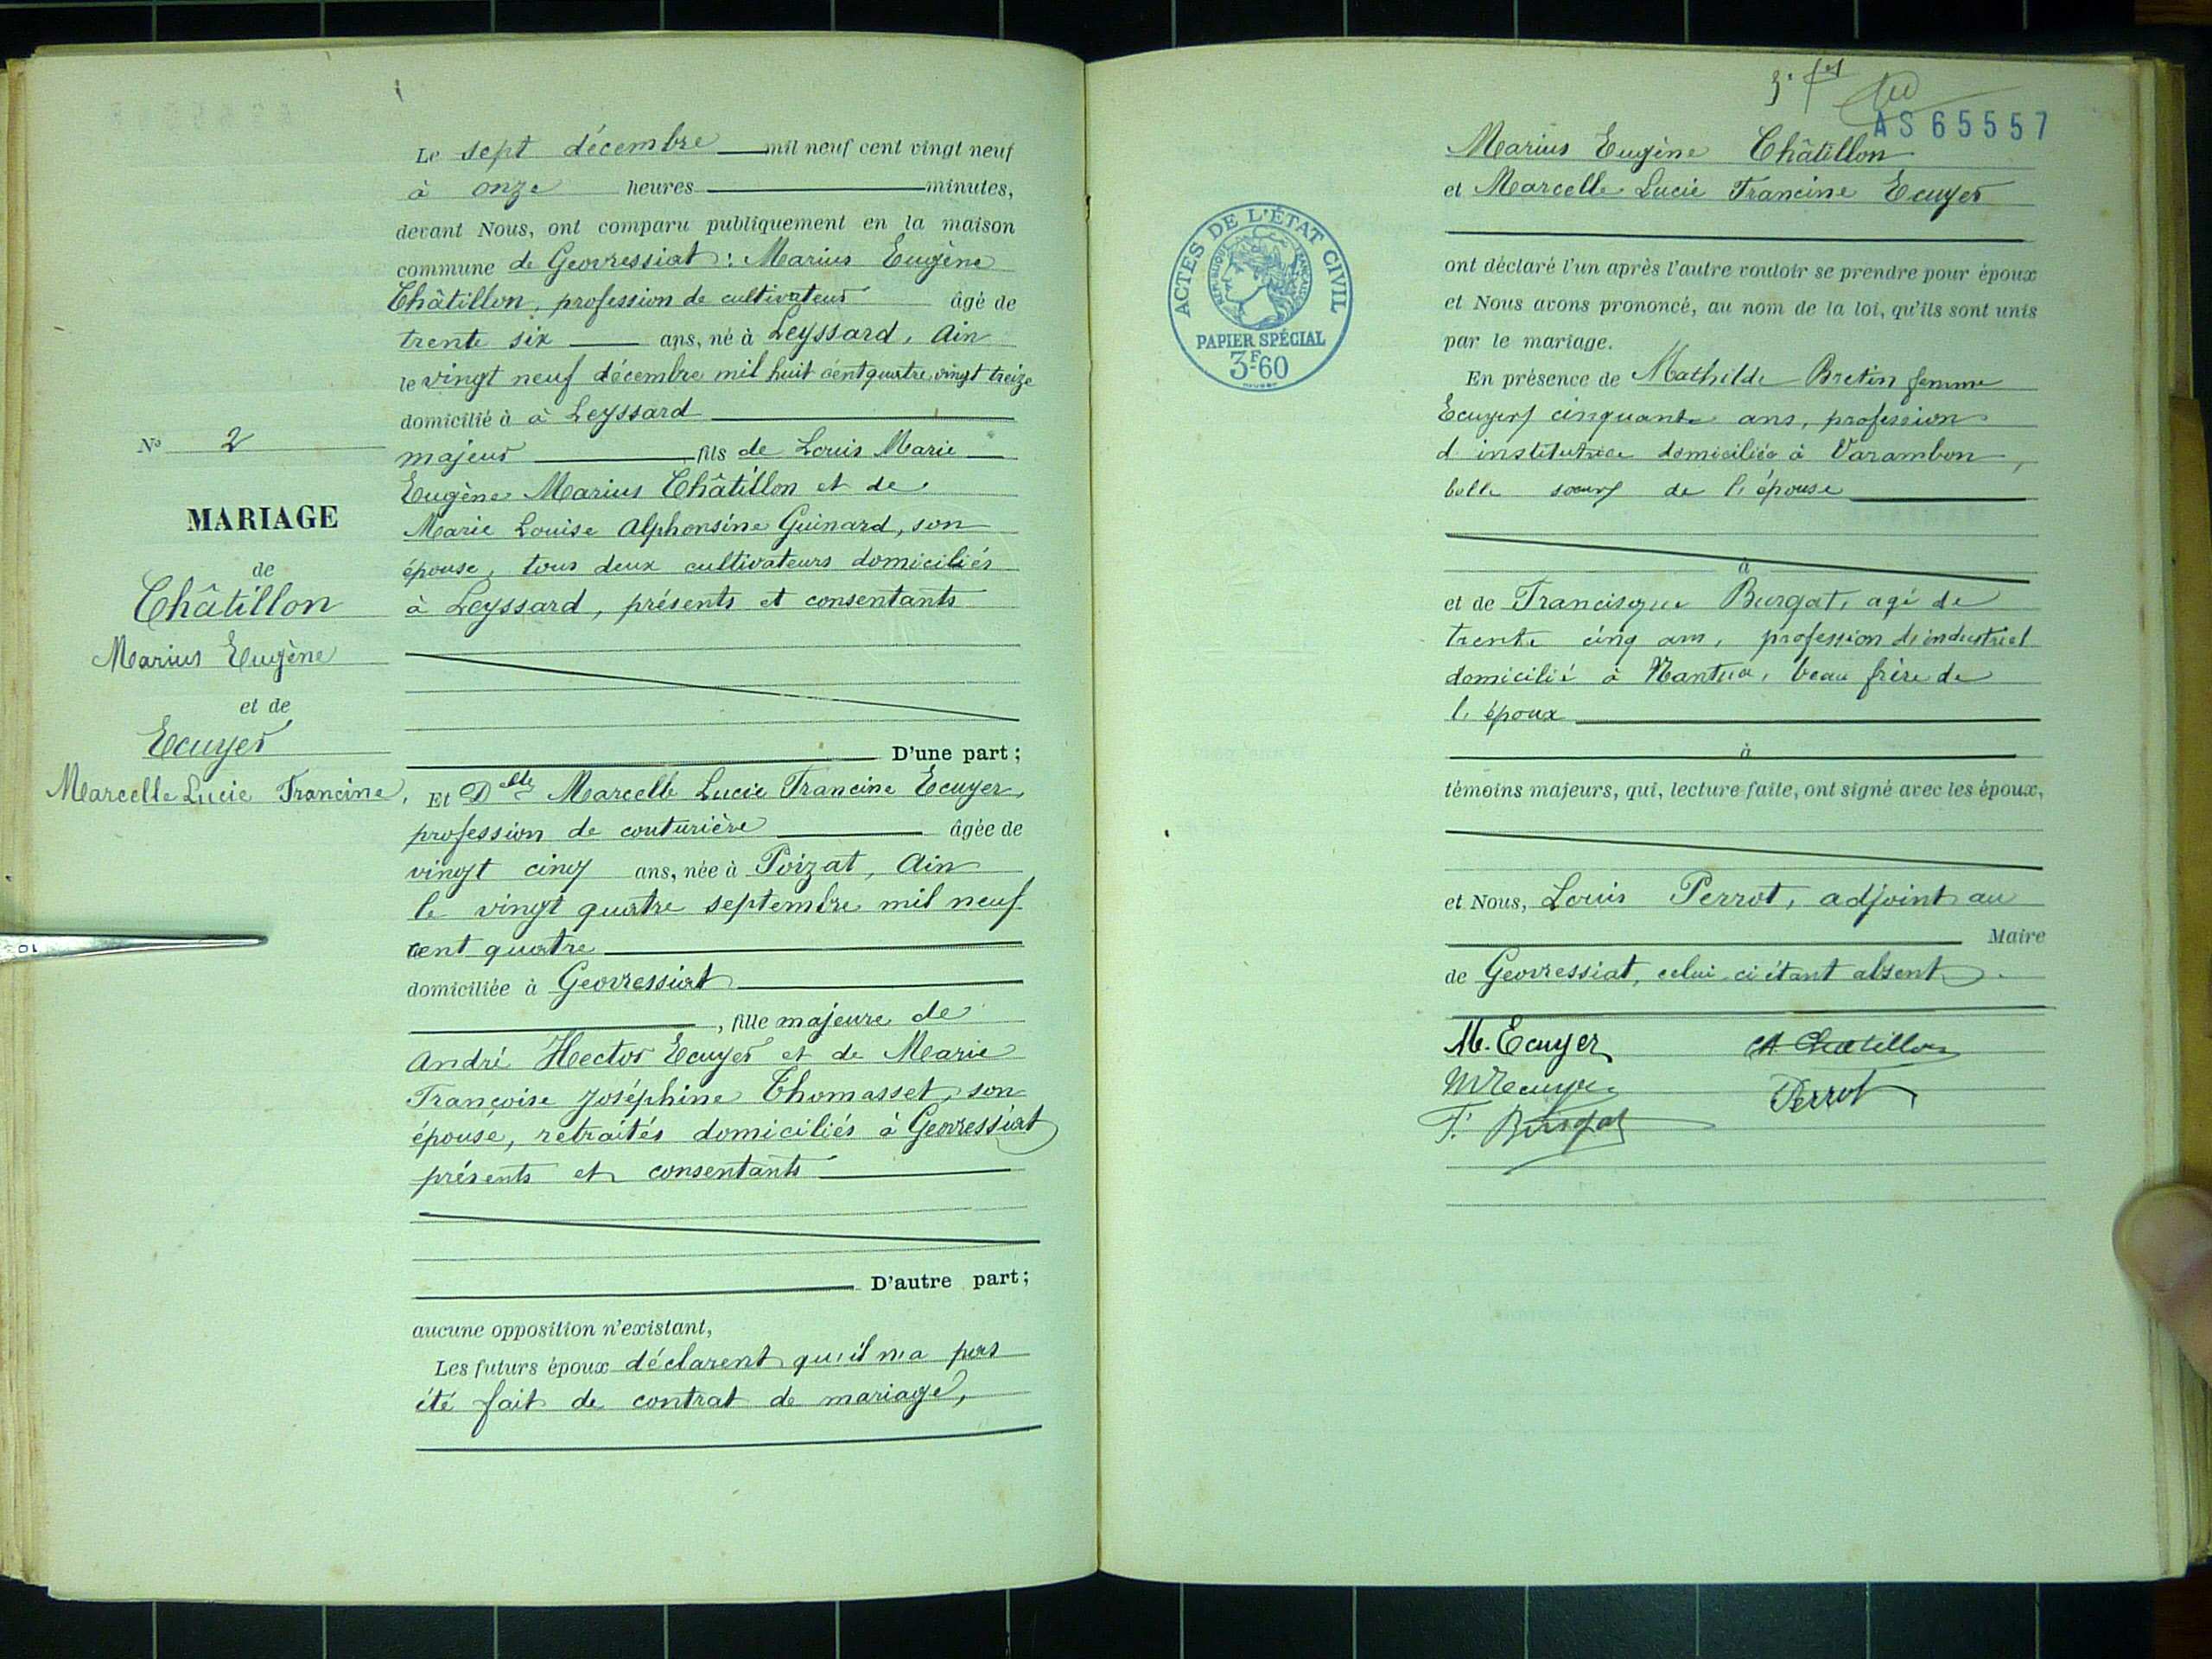 Le sept décembre mil neuf cent vingt neuf
à onze heures minutes,
devant Nous, ont comparu publiquement en la maison
commune de Geovressiat : Marius Eugène
Châtillon, profession de cultivateur âgé de
trente six ans, né à Leyssard, Ain
le vingt neuf décembre mil huit cent quatre vingt treize
domicilié à à Leyssard
majeur fils de Louis Marie
Eugène Marius Châtillon et de
Marie Louise Alphonsine Guinard, son
épouse, tous deux cultivateurs domiciliés
à Leyssard, présents et consentants
D'une part ;
N° 2
MARIAGE
de
Châtillon
Marius Eugène
et de
Ecuyer
Marcelle Lucie Francine.
Et Delle Marcelle Lucie Francine Ecuyer,
profession de couturière âgée de
vingt cinq ans, née à Poizat, Ain
le vingt quatre septembre mil neuf
cent quatre
domiciliée à Geovressiat
, fille majeure de
André Hector Ecuyer et de Marie
Françoise Joséphine Thomasset, son
épouse, retraités domiciliés à Geovressiat
présents et consentants
D'autre part ;
aucune opposition n'existant,
Les futurs époux déclarent qu'il n'a pas
été fait de contrat de mariage,
AS 65557
Marius Eugène Châtillon
et Marcelle Lucie Francine Ecuyer
ont déclaré l'un après l'autre vouloir se prendre pour époux
et Nous avons prononcé, au nom de la loi, qu'ils sont unis
par le mariage.
ACTES DE L'ÉTAT CIVIL
RÉPUBLIQUE FRANÇAISE
PAPIER SPÉCIAL
3F60
En présence de Mathilde Bretin femme
Ecuyer cinquante ans, profession
d'institutrice domiciliée à Varambon,
belle soeur de l'épouse
à
et de Francisque Burgat, agé de
trente cinq ans, profession d'industriel
domicilié à Nantua, beau frère de
l'époux
à
témoins majeurs, qui, lecture faite, ont signé avec les époux,
et Nous, Louis Perrot, adjoint au
Maire
de Geovressiat, celui ci étant absent.
M. Ecuyer Chatillon
M Ecuyer Perrot
F. Burgat